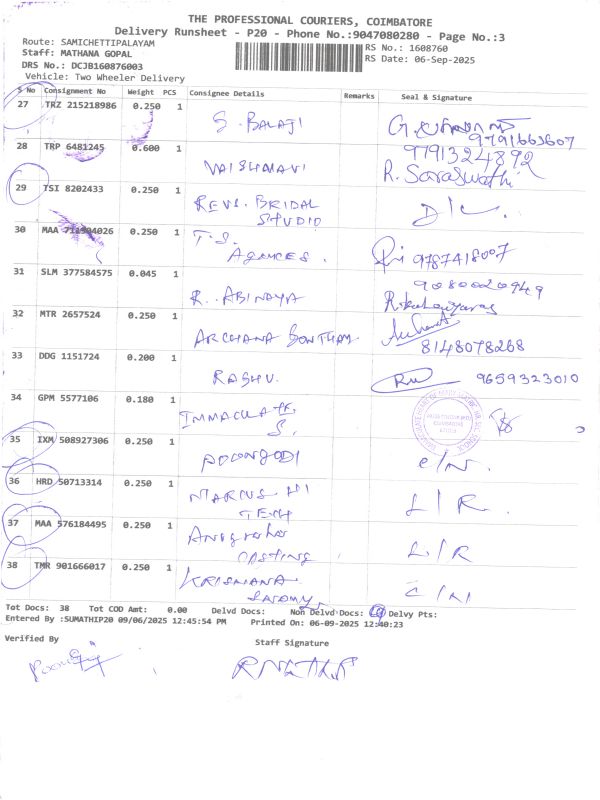 THE PROFESSIONAL COURIERS, COIMBATORE
Delivery Runsheet - P20 - Phone No.:9047080280 - Page No.:3
Route: SAMICHETTIPALAYAM RS No.: 1608760
Staff: MATHANA GOPAL RS Date: 06-Sep-2025
DRS No.: DCJB160876003
Vehicle: Two Wheeler Delivery
S No Consignment No Weight PCS Consignee Details Remarks Seal & Signature
27 TRZ 215218986 0.250 1
S. BALAJI 9791663607
28 TRP 6481245 0.600 1 9791324892
VAISHNAVI R. Saraswathi
29 TSI 8202433 0.250 1
REVS. BRIDAL
STUDIO D/C.
30 MAA 711904026 0.250 1 T.S.
AGENCES. 9787418007
31 SLM 377584575 0.045 1 9080020949
R. ABINAYA
32 MTR 2657524 0.250 1
ARCHANA 8148078268
33 DDG 1151724 0.200 1
RAGHU. 9659323010
34 GPM 5577106 0.180 1
S.
35 IXM 508927306 0.250 1
POONGODI C/N.
36 HRD 50713314 0.250 1
MARCUS HI
TECH L/R.
37 MAA 576184495 0.250 1
CASTING L/R
38 TMR 901666017 0.250 1
KRISHNANA C/N
Tot Docs: 38 Tot COD Amt: 0.00 Delvd Docs: Non Delvd Docs: Delvy Pts:
Entered By :SUMATHIP20 09/06/2025 12:45:54 PM Printed On: 06-09-2025 12:40:23
Verified By Staff Signature